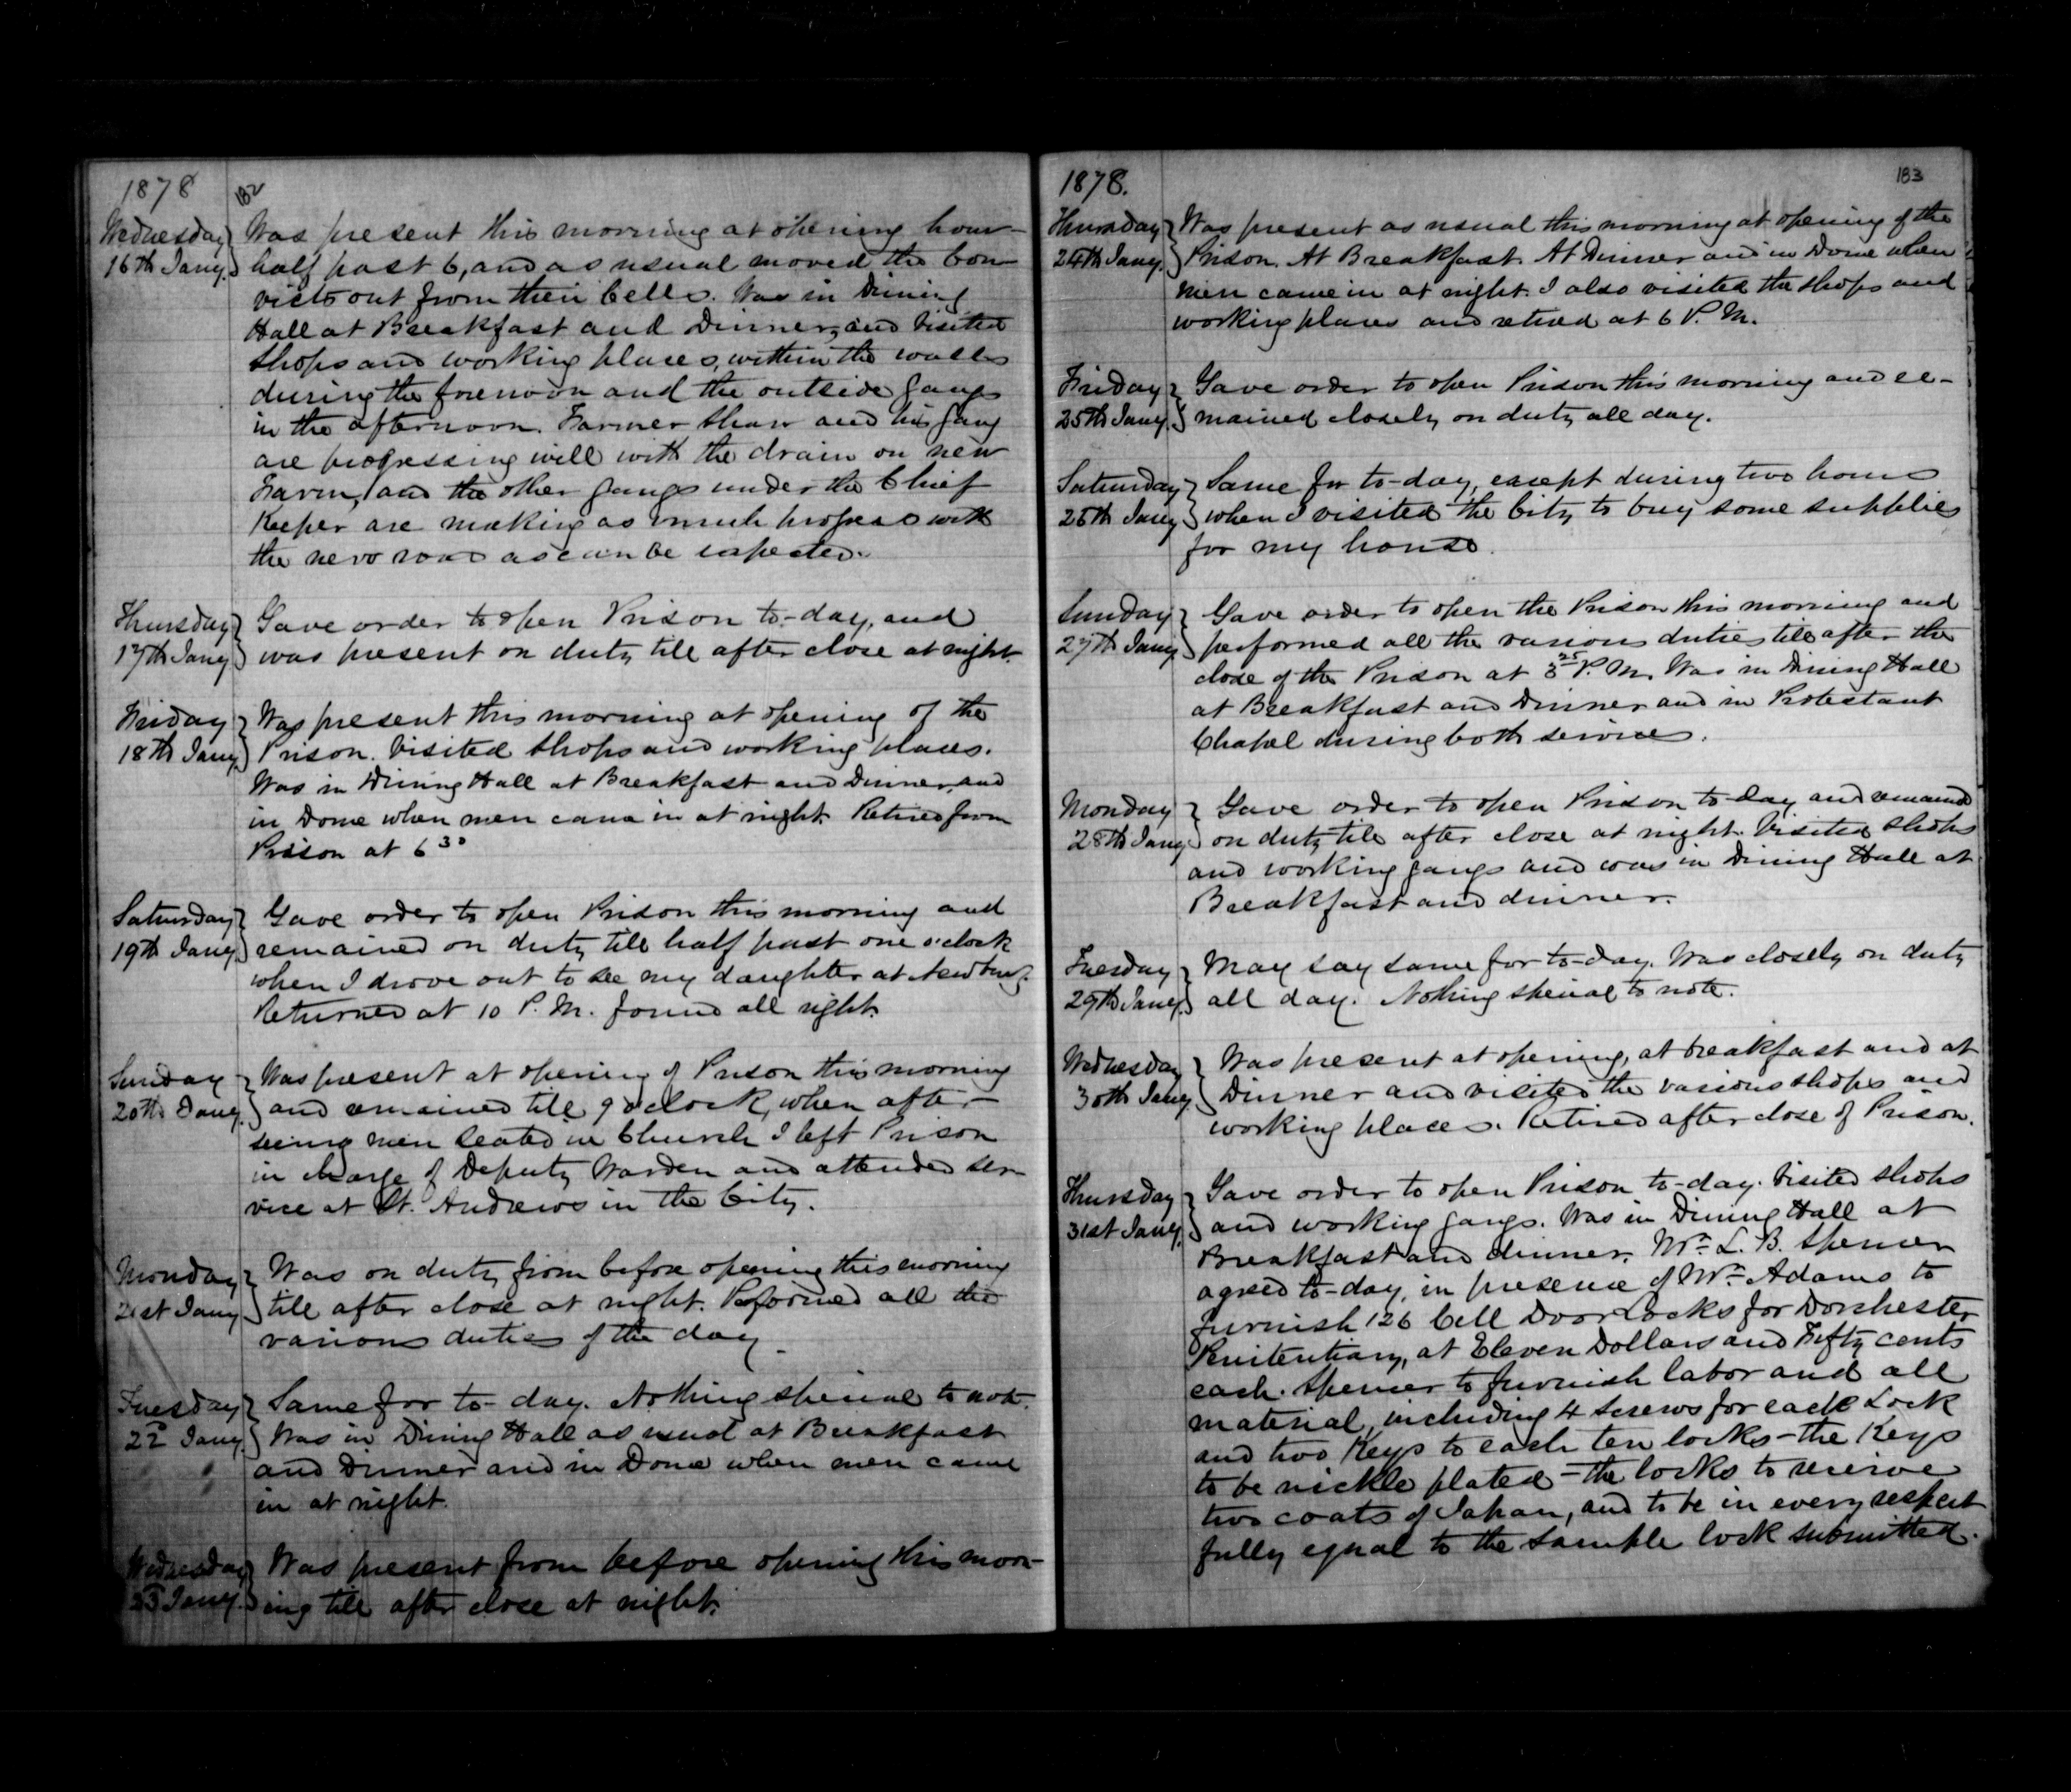 1878
182
Wednesday Was present this morning at opening hour—
16th Jany. half past 6, and as usual moved the Con-
victs out from their Cells. Was in Dining
Hall at Breakfast and Dinner, and visited
Shops and working places, within the walls
during the forenoon and the outside gangs
in the afternoon. Farmer Shaw and his gang
are progressing well with the drain on new
Farm, and the other gangs under the Chief
Keeper are making as much progress with
the new road as can be expected.
Thursday Gave order to open Prison to-day, and
17th Jany. was present on duty till after close at night.
Friday Was present this morning at opening of the
18th Jany. Prison. Visited Shops and working places.
Was in Dining Hall at Breakfast and Dinner, and
in Dome when men came in at night. Retired from
Prison at 6 30
Saturday Gave order to open Prison this morning and
19th Jany. remained on duty till half past one o'clock
when I drove out to see my daughter at Newburg.
Returned at 10 P.M. found all right.
Sunday Was present at opening of Prison this morning
20th Jany. and remained till 9 o'clock, when after
seeing men seated in Church I left Prison
in charge of Deputy Warden and attended ser-
vice at St. Andrews in the City.
Monday Was on duty from before opening this morning
21st Jany. till after close at night. Performed all the
various duties of the day.
Tuesday Same for to-day. Nothing special to note.
22d Jany. Was in Dining Hall as usual at Breakfast
and Dinner and in Dome when men came
in at night.
Wednesday Was present from before opening this morn-
23d Jany. ing till after close at night.
1878.
183
Thursday Was present as usual this morning at opening of the
24th Jany. Prison. At Breakfast. At Dinner and in Dome when
men came in at night. I also visited the shops and
working places and retired at 6 P.M.
Friday Gave order to open Prison this morning and re-
25th Jany. mained closely on duty all day.
Saturday Same for to-day, except during two hours
26th Jany. when I visited the City to buy some supplies
for my house.
Sunday Gave order to open the Prison this morning and
27th Jany. performed all the various duties till after the
close of the Prison at 3 25 P.M. Was in Dining Hall
at Breakfast and Dinner and in Protestant
Chapel during both services.
Monday Gave order to open Prison to-day and remained
28th Jany. on duty till after close at night. Visited Shops
and working gangs and was in Dining Hall at
Breakfast and dinner.
Tuesday May say same for to-day. Was closely on duty
29th Jany. all day. Nothing special to note.
Wednesday Was present at opening, at breakfast and at
30th Jany. Dinner and visited the various shops and
working places. Retired after close of Prison.
Thursday Gave order to open Prison to-day. Visited Shops
31st Jany. and working gangs. Was in Dining Hall at
Breakfast and dinner. Mr. L. B. Spencer
agreed to-day, in presence of Mr. Adams to
furnish 126 Cell Door Locks for Dorchester
Penitentiary, at Eleven Dollars and Fifty cents
each. Spencer to furnish labor and all
material, including 4 Screws for each Lock
and two Keys to each ten locks - the Keys
to be nickle plated - the locks to receive
two coats of Japan, and to be in every respect
fully equal to the sample lock submitted.